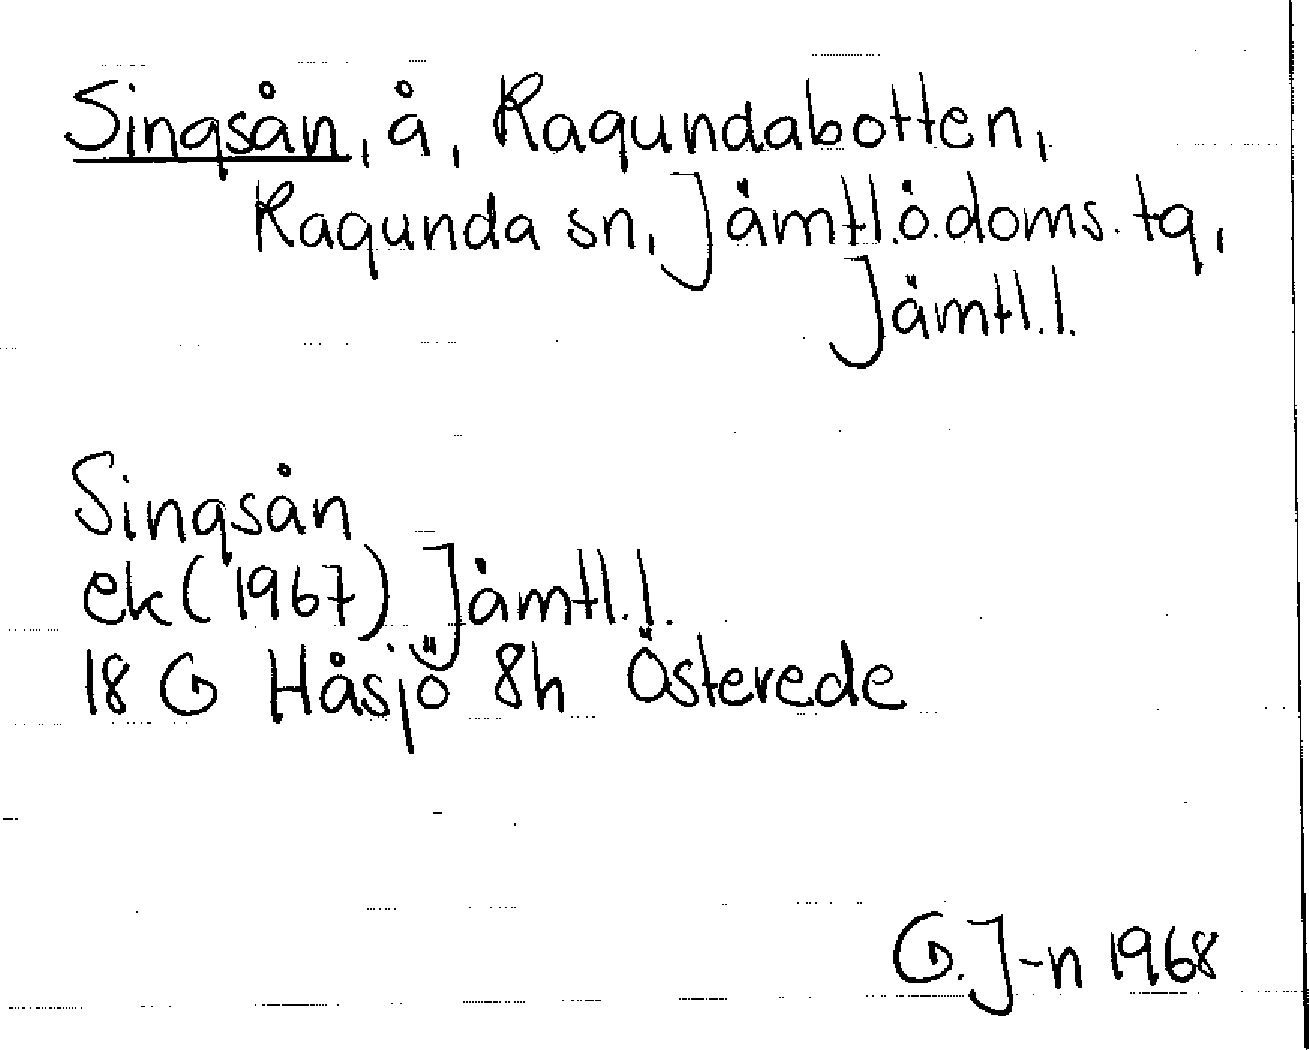 Singsån, å, Ragundabotten,
Ragunda sn, Jämtl.ö.doms.tg,
Jämtl.l.
Singsån
ek (1967) Jämtl.l.
18 G Håsjö 8h Österede
G. J-n 1968